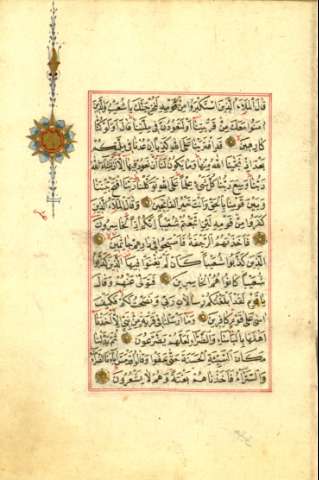 قال الملأ الذين استكبروا من قومه لنخرجنك يا شعيب والذين
امنوا معك من قريتنا او لتعودن في ملتنا قال اولو كنا
كارهين قد افترينا على الله كذبا ان عدنا في ملتكم
بعد اذ نجينا الله منها وما يكون لنا ان نعود فيها الا ان يشاء الله
ربنا وسع ربنا كل شيء علما على الله توكلنا ربنا افتح بيننا
وبين قومنا بالحق وانت خير الفاتحين وقال الملأ الذين
كفروا من قومه لئن اتبعتم شعيبا انكم اذا لخاسرون
فاخذتهم الرجفة فاصبحوا في دارهم جاثمين
الذين كذبوا شعيبا كان لم يغنوا فيها الذين كذبوا
شعيبا كانوا هم الخاسرين فتولى عنهم وقال
يا قوم لقد ابلغتكم رسالات ربي ونصحت لكم فكيف
اسى على قوم كافرين وما ارسلنا في قرية من نبي الا اخذنا
اهلها بالبأساء والضراء لعلهم يضرعون ثم بدلنا
مكان السيئة الحسنة حتى عفوا وقالوا قد مس اباءنا الضراء
والسراء فاخذناهم بغتة وهم لا يشعرون